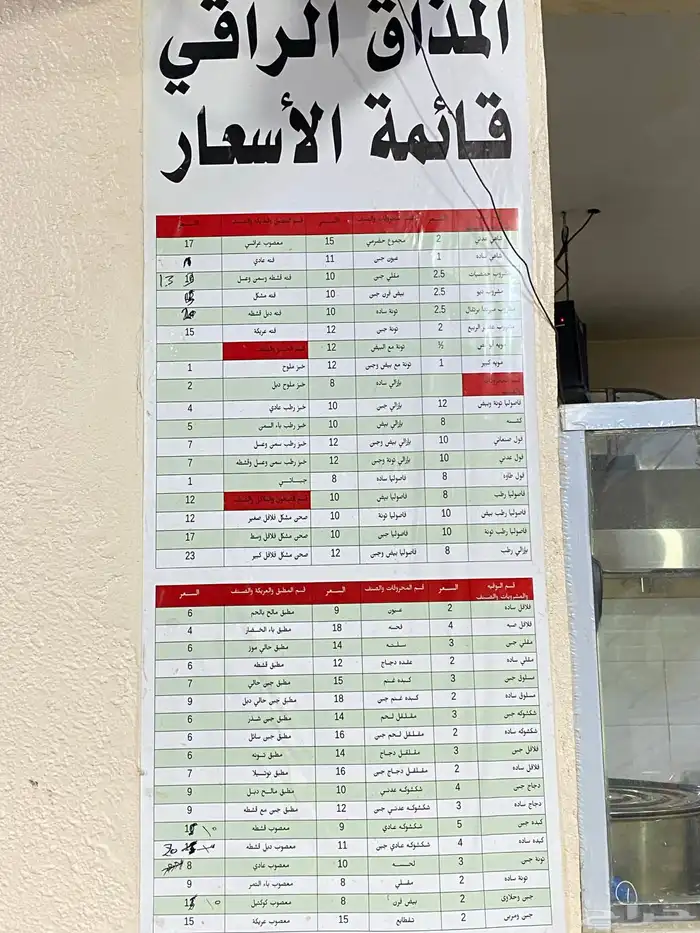 المذاق الراقي
قائمة الأسعار
شاهي عدني 2 مجموع حضرمي 15 معصوب عرائسي 17
شاهي ساده 1 عيون جبن 11 فته عادي
مشروب حمضيات 2.5 مقلي جبن 10 فته قشطه وسمن وعسل 13
مشروب ديو 2.5 بيض فرن جبن 10 فته مشكل
برتقال 2.5 تونة ساده 10 فته دبل قشطه
الربيع 2 تونة جبن 12 فته عريكة 15
½ تونة مع البيض 12
مويه كبير 1 تونة مع بيض وجبن 12 خبز ملوح 1
بازالي ساده 8 خبز ملوح دبل 2
فاصوليا تونة وبيض 12 بازالي جبن 10 خبز رطب عادي 4
كشنه 8 بازالي بيض 10 خبز رطب باء السمن 5
فول صنعاني 10 بازالي بيض وجبن 12 خبز رطب سمن وعسل 7
فول عدني 10 بازالي تونة وجبن 12 خبز رطب سمن وعسل وقشطه 7
فول طاوه 8 فاصوليا ساده 8 جباتي 1
فاصوليا رطب 8 فاصوليا بيض 10 12
فاصوليا رطب بيض 10 فاصوليا تونة 10 صحن مشكل فلافل صغير 12
فاصوليا رطب تونة 10 فاصوليا جبن 10 صحن مشكل فلافل وسط 17
بازالي رطب 8 فاصوليا بيض وجبن 12 صحن مشكل فلافل كبير 23
قسم البوفيه والمشروبات والصنف السعر قسم المحروقات والصنف السعر قسم المطبق والعريكة والصنف السعر
فلافل ساده 2 عيون 9 مطبق مالح بالحم 6
فلافل حبه 4 فحته 18 مطبق باء الخضار 4
مقلي جبن 3 سلته 14 مطبق حالي موز 6
مقلي ساده 2 عقده دجاج 12 مطبق قشطه 6
مسلوق جبن 3 كبده غنم 15 مطبق جبن حالي 7
مسلوق ساده 2 كبده غنم جبن 18 مطبق جبن حالي دبل 9
شكشوكه جبن 3 مقلقل لحم 14 مطبق جبن شدر 6
شكشوكه ساده 2 مقلقل لحم جبن 16 مطبق جبن سائل 6
فلافل جبن 3 مقلقل دجاج 14 مطبق تونه 6
فلافل ساده 2 مقلقل دجاج جبن 16 مطبق نوتيلا 7
دجاج جبن 4 شكشوكه عدني 10 مطبق مالح دبل 9
دجاج ساده 3 شكشوكه عدني جبن 12 مطبق جبن مع قشطه 9
كبده جبن 5 شكشوكه عادي 9 معصوب قشطه ١٠
كبده ساده 4 شكشوكه عادي جبن 11 معصوب دبل قشطه 20
تونة جبن 3 لحسه 10 معصوب عادي 8
تونة ساده 2 مقلى 8 معصوب باء التمر 9
جبن وحلاوى 2 بيض فرن 8 معصوب كوكتيل ١٠
جبن ومربى 2 15 معصوب عريكة 15
حراج